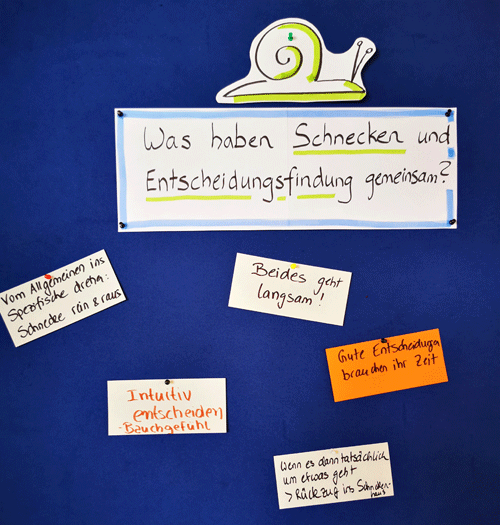 Was haben Schnecken und
Entscheidungsfindung gemeinsam?
Vom Allgemeinen ins
Spezifische drehen:
Schnecke rein & raus
Beides geht
langsam!
Gute Entscheidungen
brauchen ihr Zeit
Intuitiv
entscheiden
-Bauchgefühl
Wenn es dann tatsächlich
um etwas geht
> Rückzug ins Schnecken-
haus